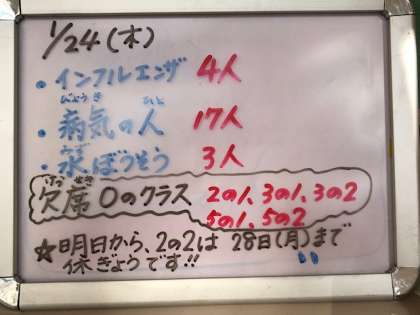 1/24(木)
・インフルエンザ 4人
びょうき ひと
・病気の人 17人
みず
・水ぼうそう 3人
けっせき
欠席0のクラス 2の1、3の1、3の2
5の1、5の2
☆明日から、2の2は28日(月)まで
休ぎょうです!!